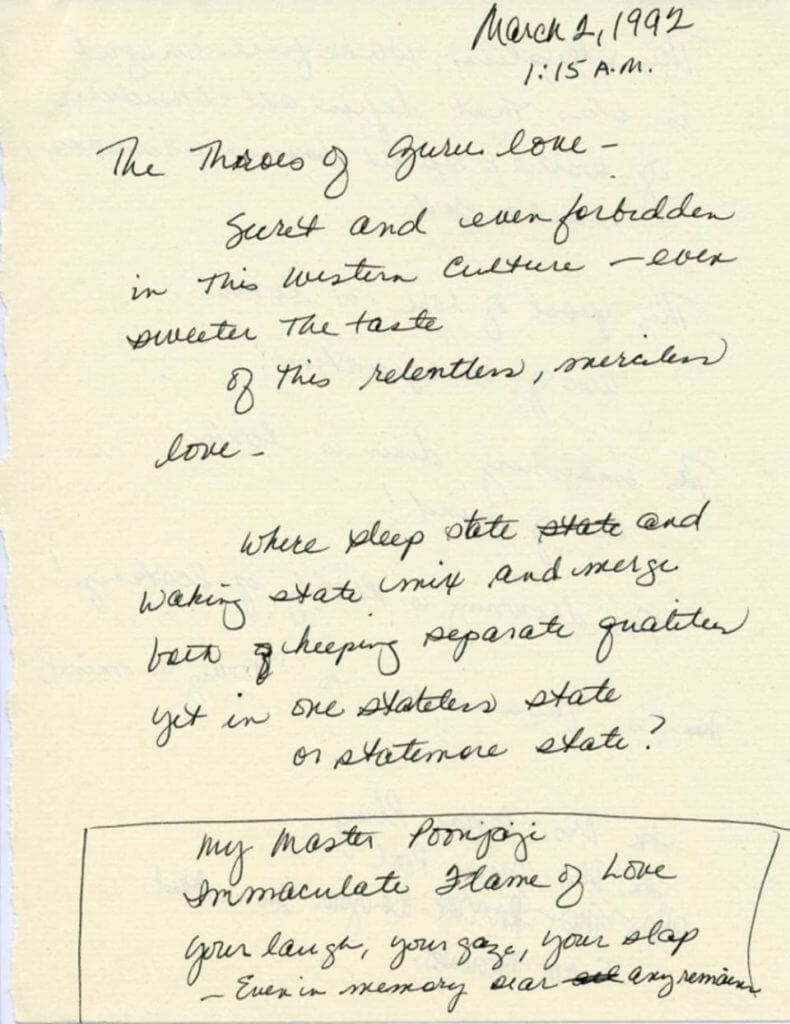 March 2, 1992
1:15 A.M.
The Throes of Guru love –
Secret and even forbidden
in This Western Culture – even
sweeter The taste
of This relentless, merciless
love –
Where sleep state state and
waking state mix and merge
both keeping separate qualities
yet in one stateless state
or statemore state?
My Master Poonjaji
Immaculate Flame of Love
your laugh, your gaze, your slap
– Even in memory sear any remains